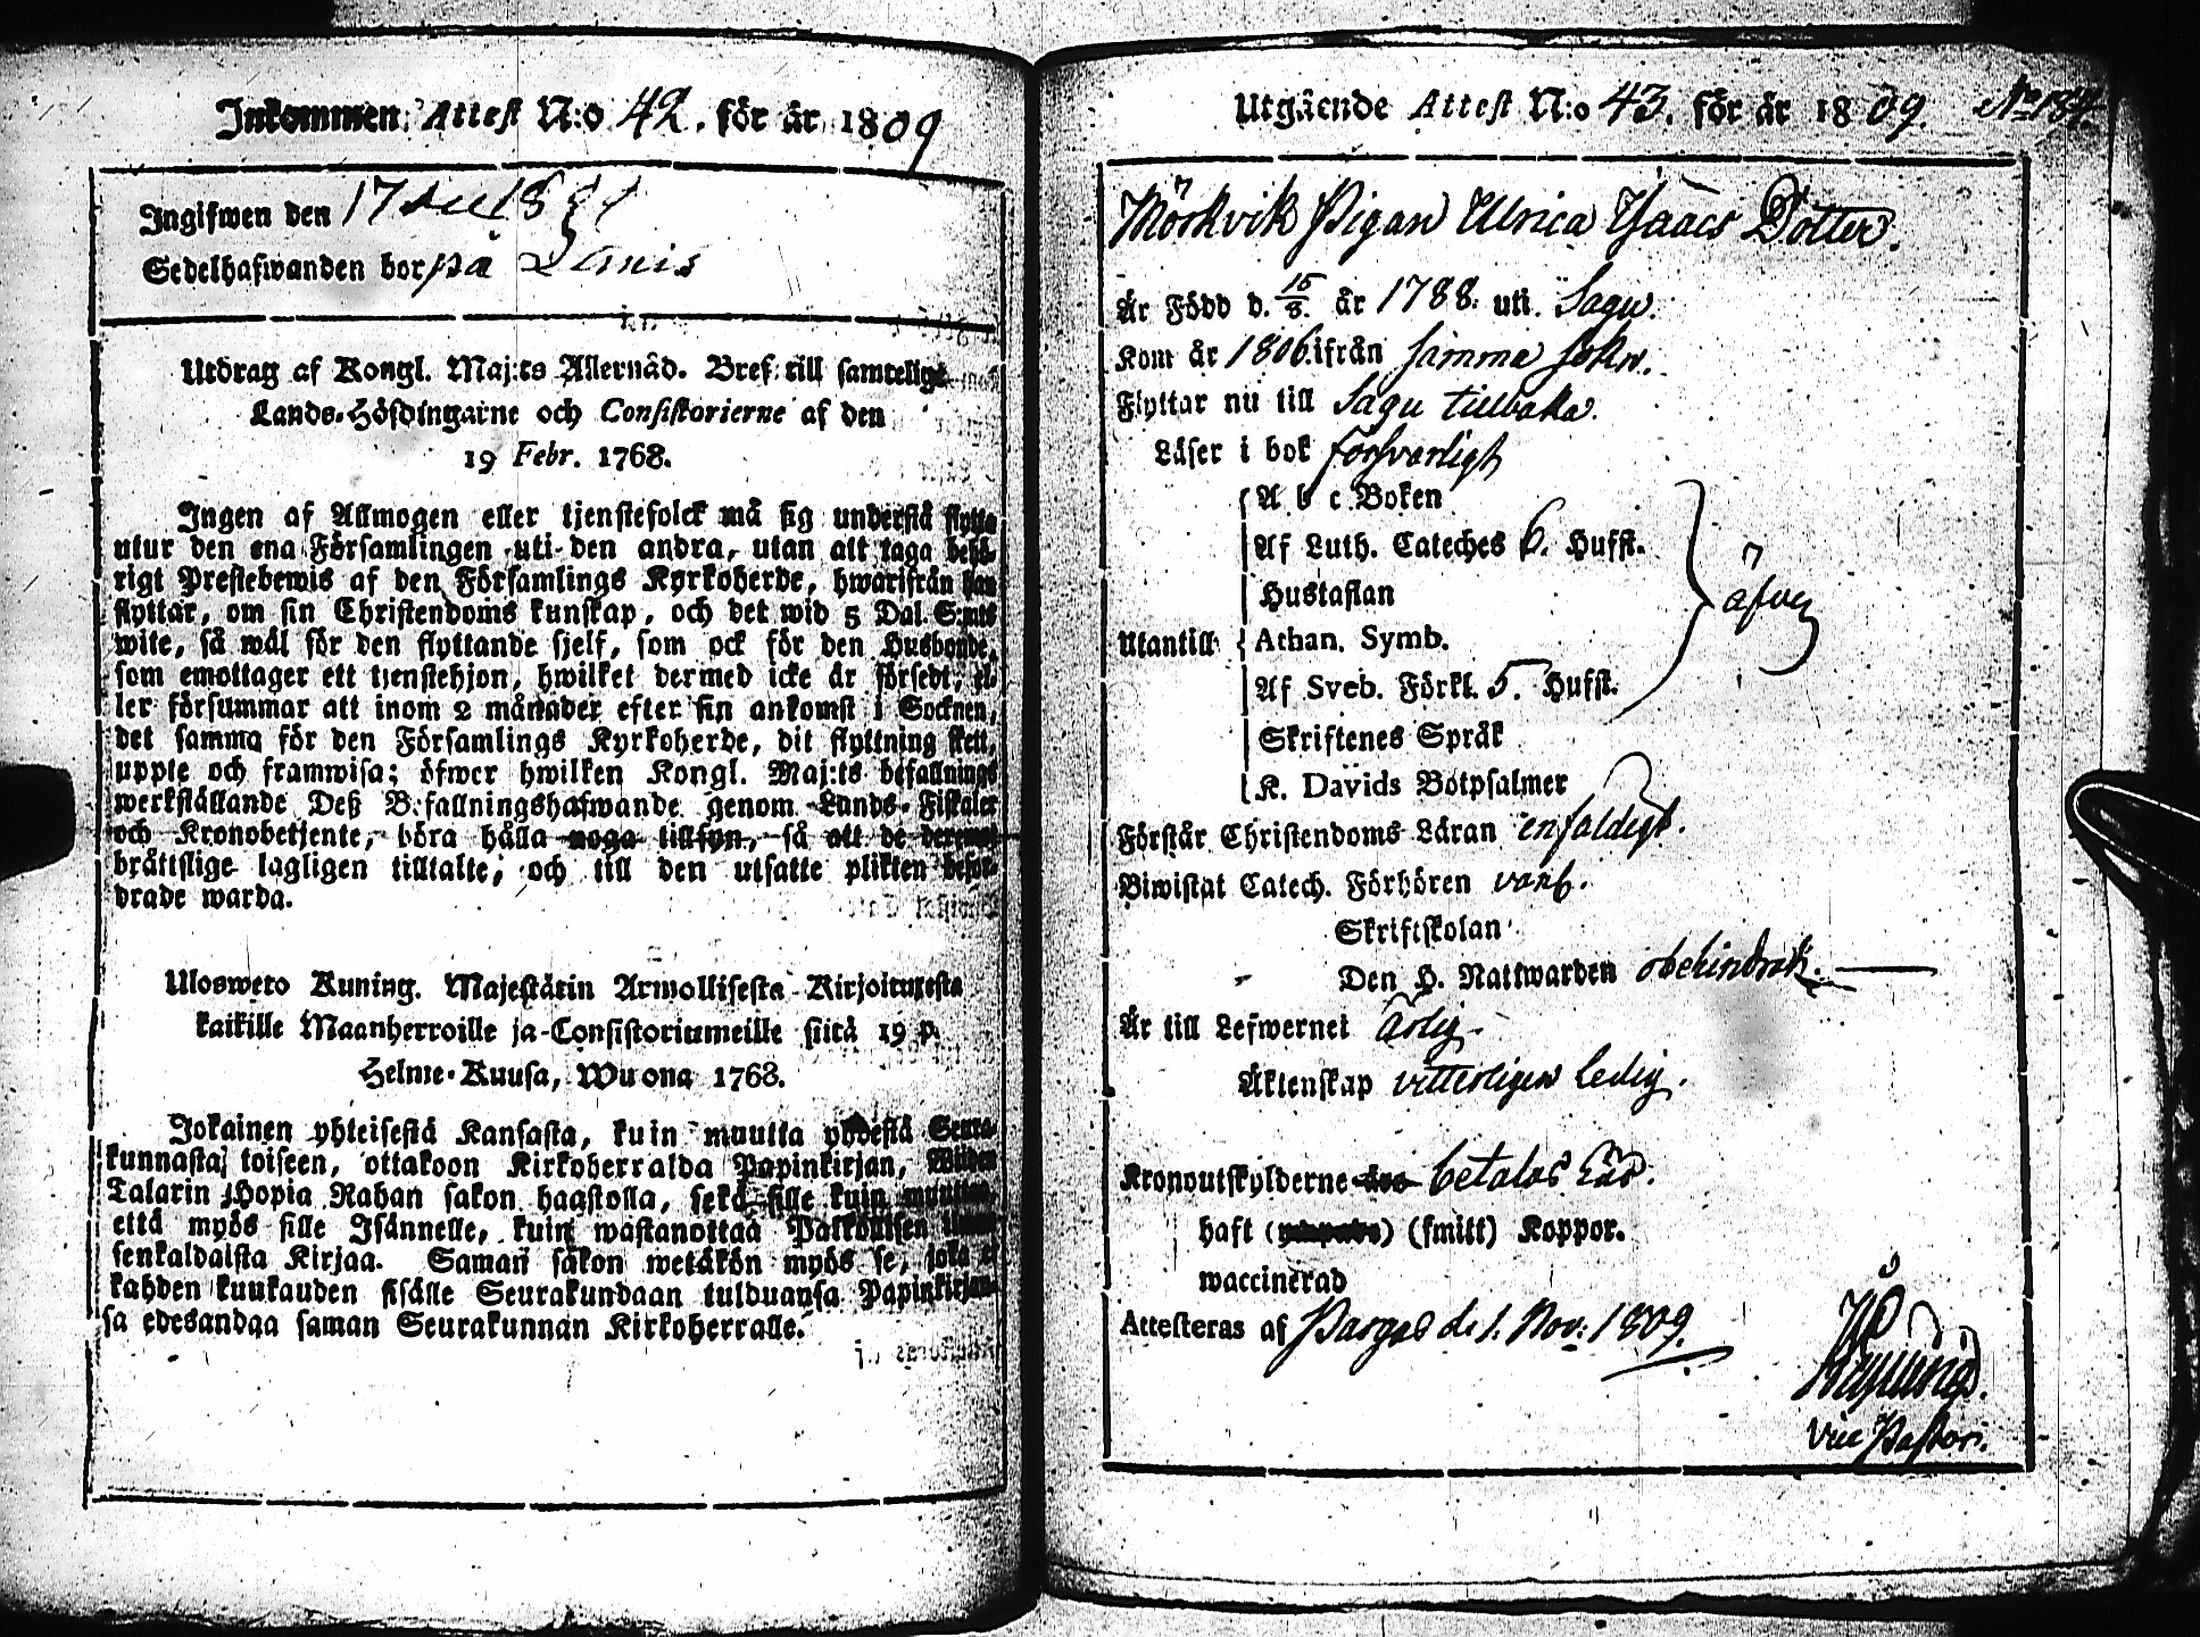 Inkommen Attest N:o 42. för år 1809
Ingifwen den 17
Sedelhafwanden bor på
Utdrag af Kongl. Maj:ts Allernåd. Bref till samtelige
Lands-Höfdingarne och Consistorierne af den
19 Febr. 1768.
Ingen af Allmogen eller tjenstefolck må sig understå flytta
utur den ena Församlingen uti den andra, utan att taga behö-
rigt Prestebewis af den Församlings Kyrkoherde, hwarifrån han
flyttar, om sin Christendoms kunskap, och det wid 5 Dal. S:mts
wite, så wäl för den flyttande sjelf, som ock för den Husbonde,
som emottager ett tjenstehjon, hwilket dermed icke är försedt, el-
ler försummar att inom 2 månader efter sin ankomst i Socknen,
det samma för den Församlings Kyrkoherde, dit flyttning skett,
uppte och framwisa; öfwer hwilken Kongl. Maj:ts befallnings
werkställande Deß Befallningshafwande genom Lands-Fiskaler
och Kronobetjente, böra hålla noga tillsyn, så att de deremot
bråttslige lagligen tilltalte, och till den utsatte plikten befor-
drade warda.
Ulosweto Kuning. Majestätin Armollisesta Kirjoituxesta
kaikille Maanherroille ja Consistoriumeille siitä 19 p.
Helme-Kuusa, Wuona 1768.
Jokainen yhteisestä Kansasta, kuin muutta yhdestä Seura-
kunnasta toiseen, ottakoon Kirkoherralda Papinkirjan, Wiiden
Talarin Hopia Rahan sakon haastolla, sekä sille kuin muuttaa,
että myös sille Isännelle, kuin wastanottaa Palkollisen ilman
senkaldaista Kirjaa. Saman sakon wetäkön myös se, joka ei
kahden kuukauden sisälle Seurakundaan tulduansa Papinkirjan-
sa edesandaa saman Seurakunnan Kirkoherralle.
Utgående Attest N:o 43. för år 1809. No 184.
Mörkvik Pigan Ulrica Isaacs Dotter.
Är Född d. 15/8. år 1788. uti Sagu.
Kom år 1806. ifrån samma sokn.
Flyttar nu till Sagu tillbaka.
Läser i bok försvarligt
A b c Boken
Af Luth. Cateches 6. Hufst.
Hustaflan
Utantill Athan. Symb. äfven
Af Sveb. Förkl. 5. Hufst.
Skriftenes Språk
K. Davids Botpsalmer
Förstår Christendoms Läran enfaldigt.
Biwistat Catech. Förhören
Skriftskolan
Den H. Nattwarden obehindrat.
Är till Lefwernet ärlig.
Äktenskap vitterligen ledig.
Kronoutskylderne äro betalas här.
haft ( ) (smitt) Koppor.
waccinerad
Attesteras af Pargas d. 1. Nov: 1809.
Vice Pastor.